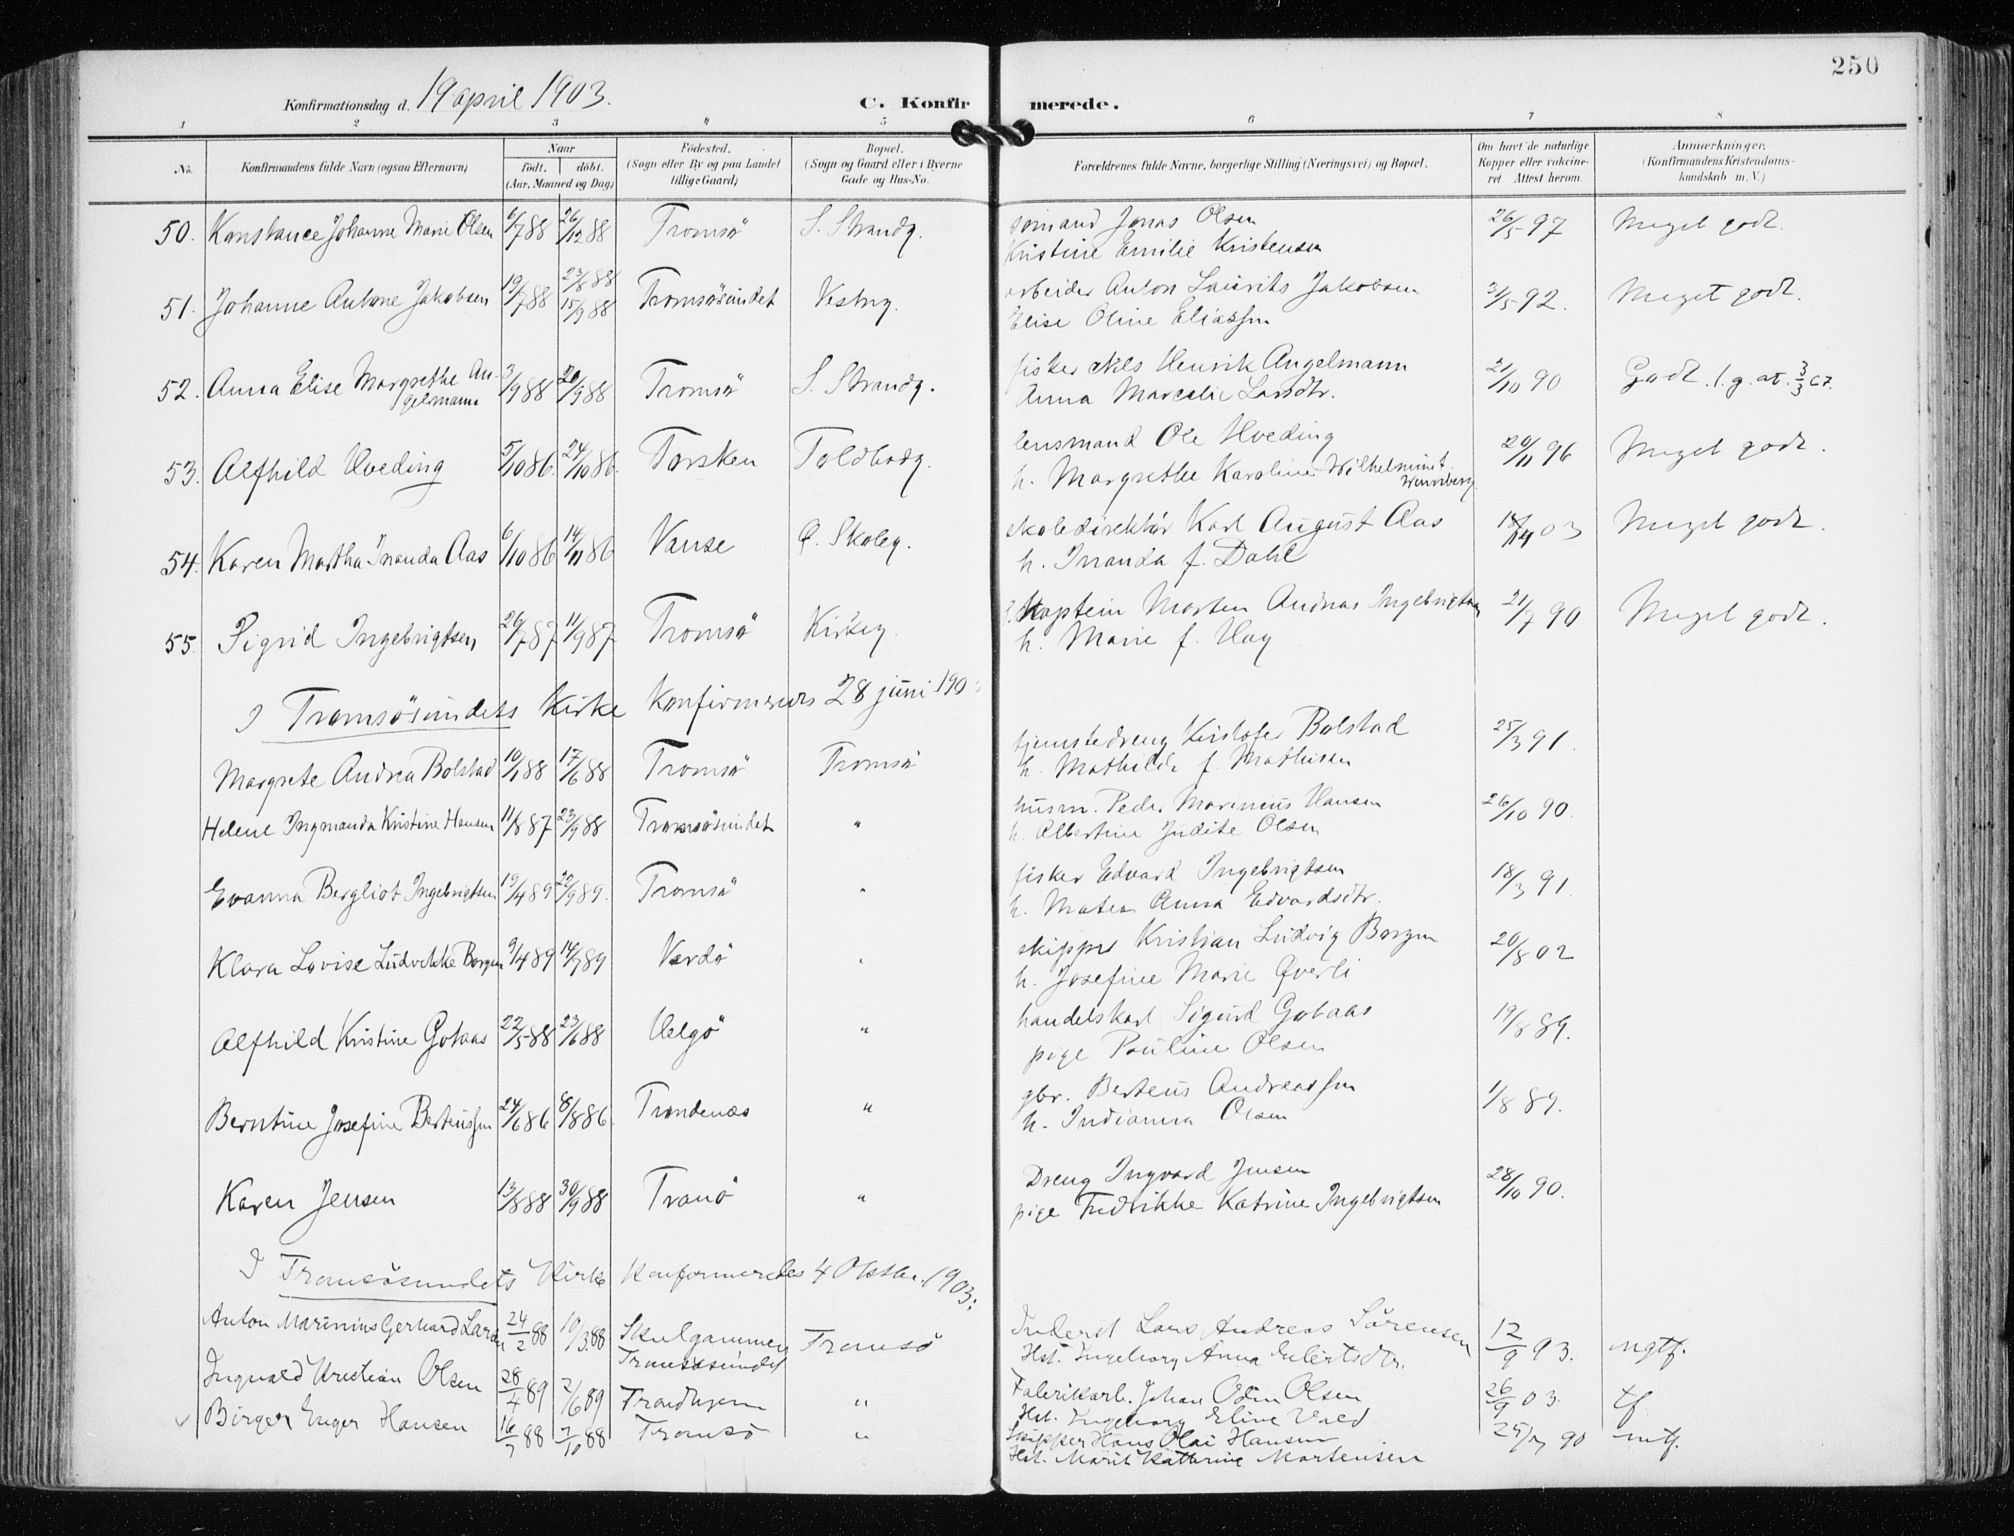 250
Konfirmationsdag d. 19 april 1903. C. Konfirmerede.
1 2 3 4 5 6 7 8
No. Konfirmandens fulde Navn (ogsaa Efternavn) Naar født. døbt. (Aar, Maaned og Dag) Fødested. (Sogn eller By og paa Landet tillige Gaard) Bopæl. (Sogn og Gaard eller i Byerne Gade og Hus-No. Forældrenes fulde Navne, borgerlige Stilling (Næringsvei) og Bopæl. Om havt de naturlige Kopper eller vakcineret Attest herom. Anmærkninger. (Konfirmandens Kristendomskundskab m. V.)
50. Konstance Johanne Marie Olsen 6/7 88 26/12 88 Tromsö S. Strandg. sømand Jonas Olsen 26/5 97 Meget godt.
Kristine Emilie Kristensen
51. Johanne Antone Jakobsen 19/7 88 23/8 88 15/9 88 Tromsösundet Vestrg. arbeider Anton Laurits Jakobsen 31/5 92. Meget godt.
Elise Oline Eliassen
52. Anna Elise Margrethe Angelmann 3/9 88 20/9 88 Tromsö S. Strandg. fisker Nils Henrik Angelmann 21/10 90 Godt.
Anna Marcelie Larsdtr.
53. Alfhild Hveding 5/10 86. 24/10 86. Torsken Toldbodg. lensmand Ole Hveding 20/11 96 Meget godt.
h. Margrethe Karoline Wilhelmine
54. Karen Martha Inanda Aas 6/10 86 14/11 86 Vanse Ø. Skoleg. skoledirektör Karl August Aas 03 Meget godt.
h. Inanda f. Dahl
55. Sigrid Ingebrigtsen 26/7 87 11/9 87 Tromsö Kirkeg. Kaptein Morten Andreas Ingebrigtsen 21/7 90 Meget godt.
h. Marie f. Hay
I Tromsösundets Kirke Konfirmeres 28 juni 1903
Margrete Andrea Bolstad 10/1 88 17/6 88 Tromsö Tromsö tjenestedreng Kristofer Bolstad 25/3 91.
h. Mathilde f. Mathisen
Helene Ingmanda Kristine Hansen 11/8 87 23/9 88 Tromsösundet " husm. Peder Marineus Hansen 26/10 90.
h. Albertine Judite Olsen
Evanna Bergliot Ingebrigtsen 19/4 89 22/9 89. Tromsö " fisker Edvard Ingebrigtsen 18/3 91.
h. Matea Anna Edvardsdtr.
Klara Lovise Ludvikke Borgen 9/4 89 14/7 89 Vardö " skipper Kristian Ludvig Borgen 20/8 02
h. Josefine Marie Qverli
Alfhild Kristine Gotaas 22/5 88 23/6 88 Helgö " handelskarl Sigurd Gotaas 19/8 89.
pige Pauline Olsen
Berntine Josefine Berteussen 24/6 86 8/8 86. Trondenæs " gbr. Berteus Andreassen 1/8 89.
h. Indianna Olsen
Karen Jensen 13/8 88 30/9 88 Tranö " Dreng Ingvard Jensen 28/10 90.
pige Fredrikke Katrine Ingebrigtsen
I Tromsösundets Kirke Konfirmeredes 4 Oktbr. 1903:
Anton Marinius Gerhard Larsen 24/2 88 10/3 88 Skulgammen Tromsösundet Tromsö Inderst Lars Andreas Sörensen 12/9 93. mgtf.
Hst. Ingeborg Anna Eilertsdtr.
Ingvald Kristian Olsen 28/4 89 2/6 89 Trondhjem " Fabrikarb. Johan Odin Olsen 26/9 03. tf
Hst. Ingeborg Eline Vald
Birger Enger Hansen 16/7 88 7/10 88 Tromsö " Skipper Hans Olai Hansen 90 mtf.
Hst. Marit Kathrine Mortensen